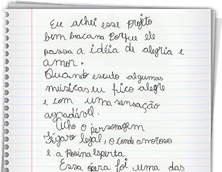 Eu achei esse projeto
bem bacana porque ele
passa a idéia de alegria e
amor.
Quando escuto algumas
músicas eu fico alegre
e com uma sensação
agradável.
Acho o personagem
Figaro legal, o conde amoroso
e a Rosina esperta.
Essa ópera foi uma das